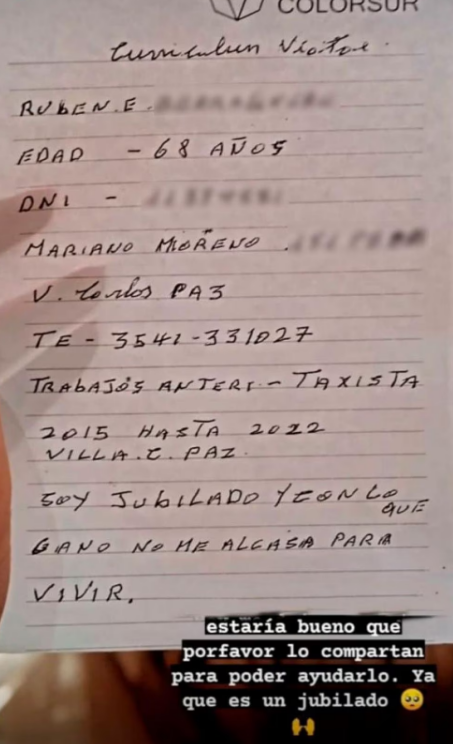 COLORSUR
Curriculun Viotae.
RUBEN.E.
EDAD - 68 AÑOS
DNI -
MARIANO MORENO.
V. Carlos PAZ
TE - 3541-331027
TRABAJOS ANTERI - TAXISTA
2015 HASTA 2022
VILLA.C. PAZ.
SOY JUBILADO Y CON LO
QUE
GANO NO ME ALCASA PARA
VIVIR.
estaría bueno que
porfavor lo compartan
para poder ayudarlo. Ya
que es un jubilado 🥺
🙌